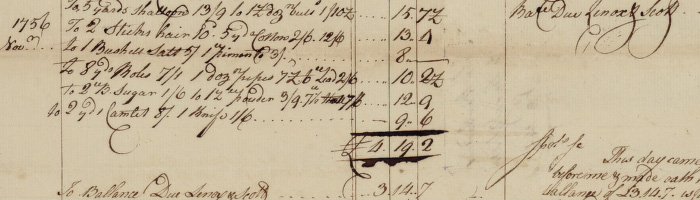 To 5 yards Shalloon 13/9 to 12 doz buttns 1/10½ .... 15. 7½
1756
To 2 Sticks hair 10. 5 yds 2/6. 12/6 .... 13. 4
Novr
to 1 Bushell Salt 5/ 1 3/ .... 8.
To 8 yd 7/1 1 doz pipes 7½ 6 Lead 2/6 .... 10. 2½
to 2 lb Sugar 1/6 to 12 powder 3/9. 7/6 .... 12. 9
to 2 yd Camlet 8/ 1 Knife 1/6 .... 9. 6
£ 4. 19. 2
To Ballance Due Lenox & Scott .... 3. 14. 7
Due Lenox & Scott
This day came
before me & made oath
Ballance of £3.14.7.